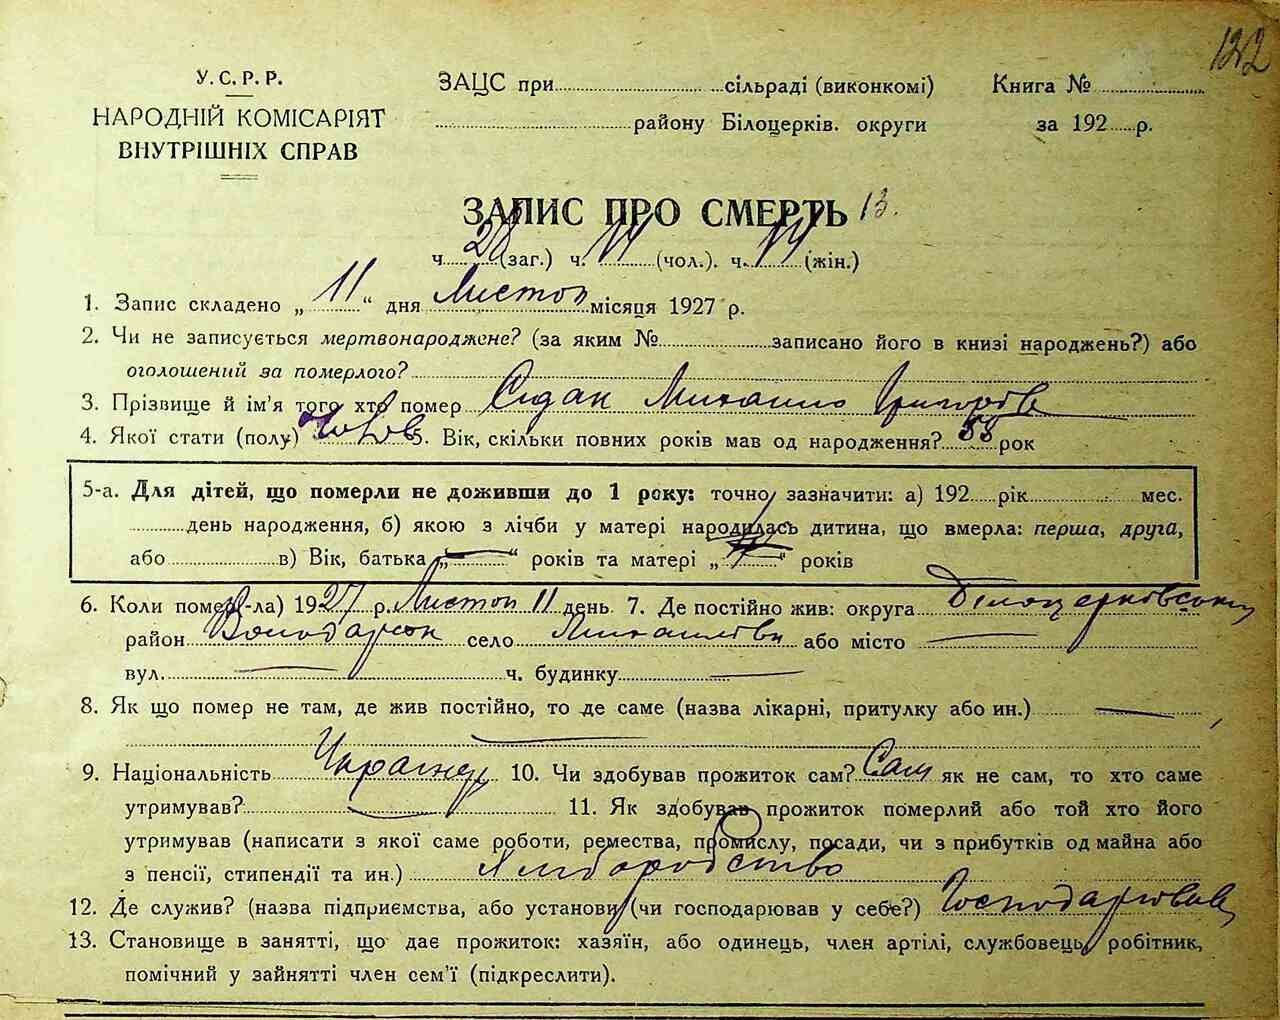 122
У.С.Р.Р.
НАРОДНІЙ КОМІСАРІЯТ
ВНУТРІШНІХ СПРАВ
ЗАЦС при сільраді (виконкомі) Книга №
району Білоцерків. округи за 192 р.
ЗАПИС ПРО СМЕРТЬ 13.
ч. 28 (заг.) ч. 14 (чол.). ч. 14 (жін.)
1. Запис складено „ 11 “ дня Листоп місяця 1927 р.
2. Чи не записується мертвонароджене? (за яким № записано його в книзі народжень?) або
оголошений за померлого?
3. Прізвище й ім'я того хто помер Сідак Михайло Григорів
4. Якої стати (полу) Чолов 5. Вік, скільки повних років мав од народження? 53 рок
5-а. Для дітей, що померли не доживши до 1 року: точно зазначити: а) 192 рік мес.
день народження, б) якою з лічби у матері народилась дитина, що вмерла: перша, друга,
або в) Вік, батька „ “ років та матері „ “ років
6. Коли помер(-ла) 1927 р. Листоп 11 день. 7. Де постійно жив: округа Білоцерковська
район Володарськ село Михайлівка або місто
вул. ч. будинку
8. Як що помер не там, де жив постійно, то де саме (назва лікарні, притулку або ин.)
9. Національність Українец 10. Чи здобував прожиток сам? Сам як не сам, то хто саме
утримував? 11. Як здобував прожиток померлий або той хто його
утримував (написати з якої саме роботи, ремества, промислу, посади, чи з прибутків од майна або
з пенсії, стипендії та ин.) Хліборобство
12. Де служив? (назва підприємства, або установи (чи господарював у себе?) Господарював
13. Становище в занятті, що дає прожиток: хазяїн, або одинець, член артілі, службовець, робітник,
помічний у зайнятті член сем'ї (підкреслити).